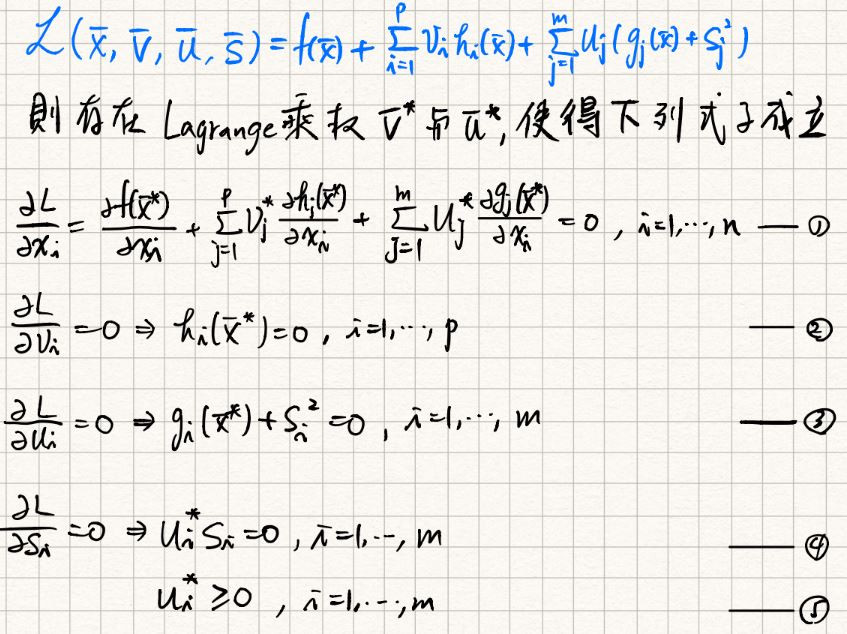 L(x̄, v̄, ū, s̄) = f(x̄) + Σ_{i=1}^{p} v_i h_i(x̄) + Σ_{j=1}^{m} u_j (g_j(x̄) + s_j²)
則存在 Lagrange 乘权 v̄* 与 ū*, 使得下列式子成立
∂L/∂x_i = ∂f(x̄*)/∂x_i + Σ_{j=1}^{p} v_j* ∂h_j(x̄*)/∂x_i + Σ_{j=1}^{m} u_j* ∂g_j(x̄*)/∂x_i = 0 , i=1,…,n — ①
∂L/∂v_i = 0 ⇒ h_i(x̄*) = 0 , i=1,…, p — ②
∂L/∂u_i = 0 ⇒ g_i(x̄*) + s_i² = 0 , i=1,…, m — ③
∂L/∂s_i = 0 ⇒ u_i* s_i = 0 , i=1,…, m — ④
u_i* ≥ 0 , i=1,…,m — ⑤